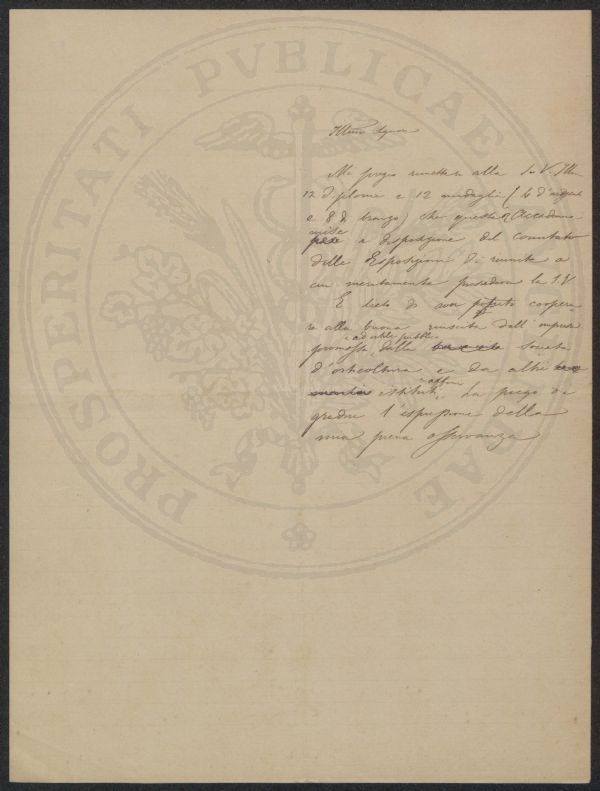 PROSPERITATI PVBLICAE
Illmo Signore
Mi pregio rimettere alla S. V. Ill
12 diplomi e 12 medaglie (4 d'argento
e 8 di bronzo) che questa Accademia
mise
a disposizione del comitato
delle Esposizioni di
cui meritamente presiede la S.V.
E lieto di aver potuto coopera
re alla buona riuscita dell'impresa
ad utile pubblico
promossa dalla società
d'orticoltura e da altri
affini
istituti, La prego di
gradire l'espressione della
mia piena osservanza